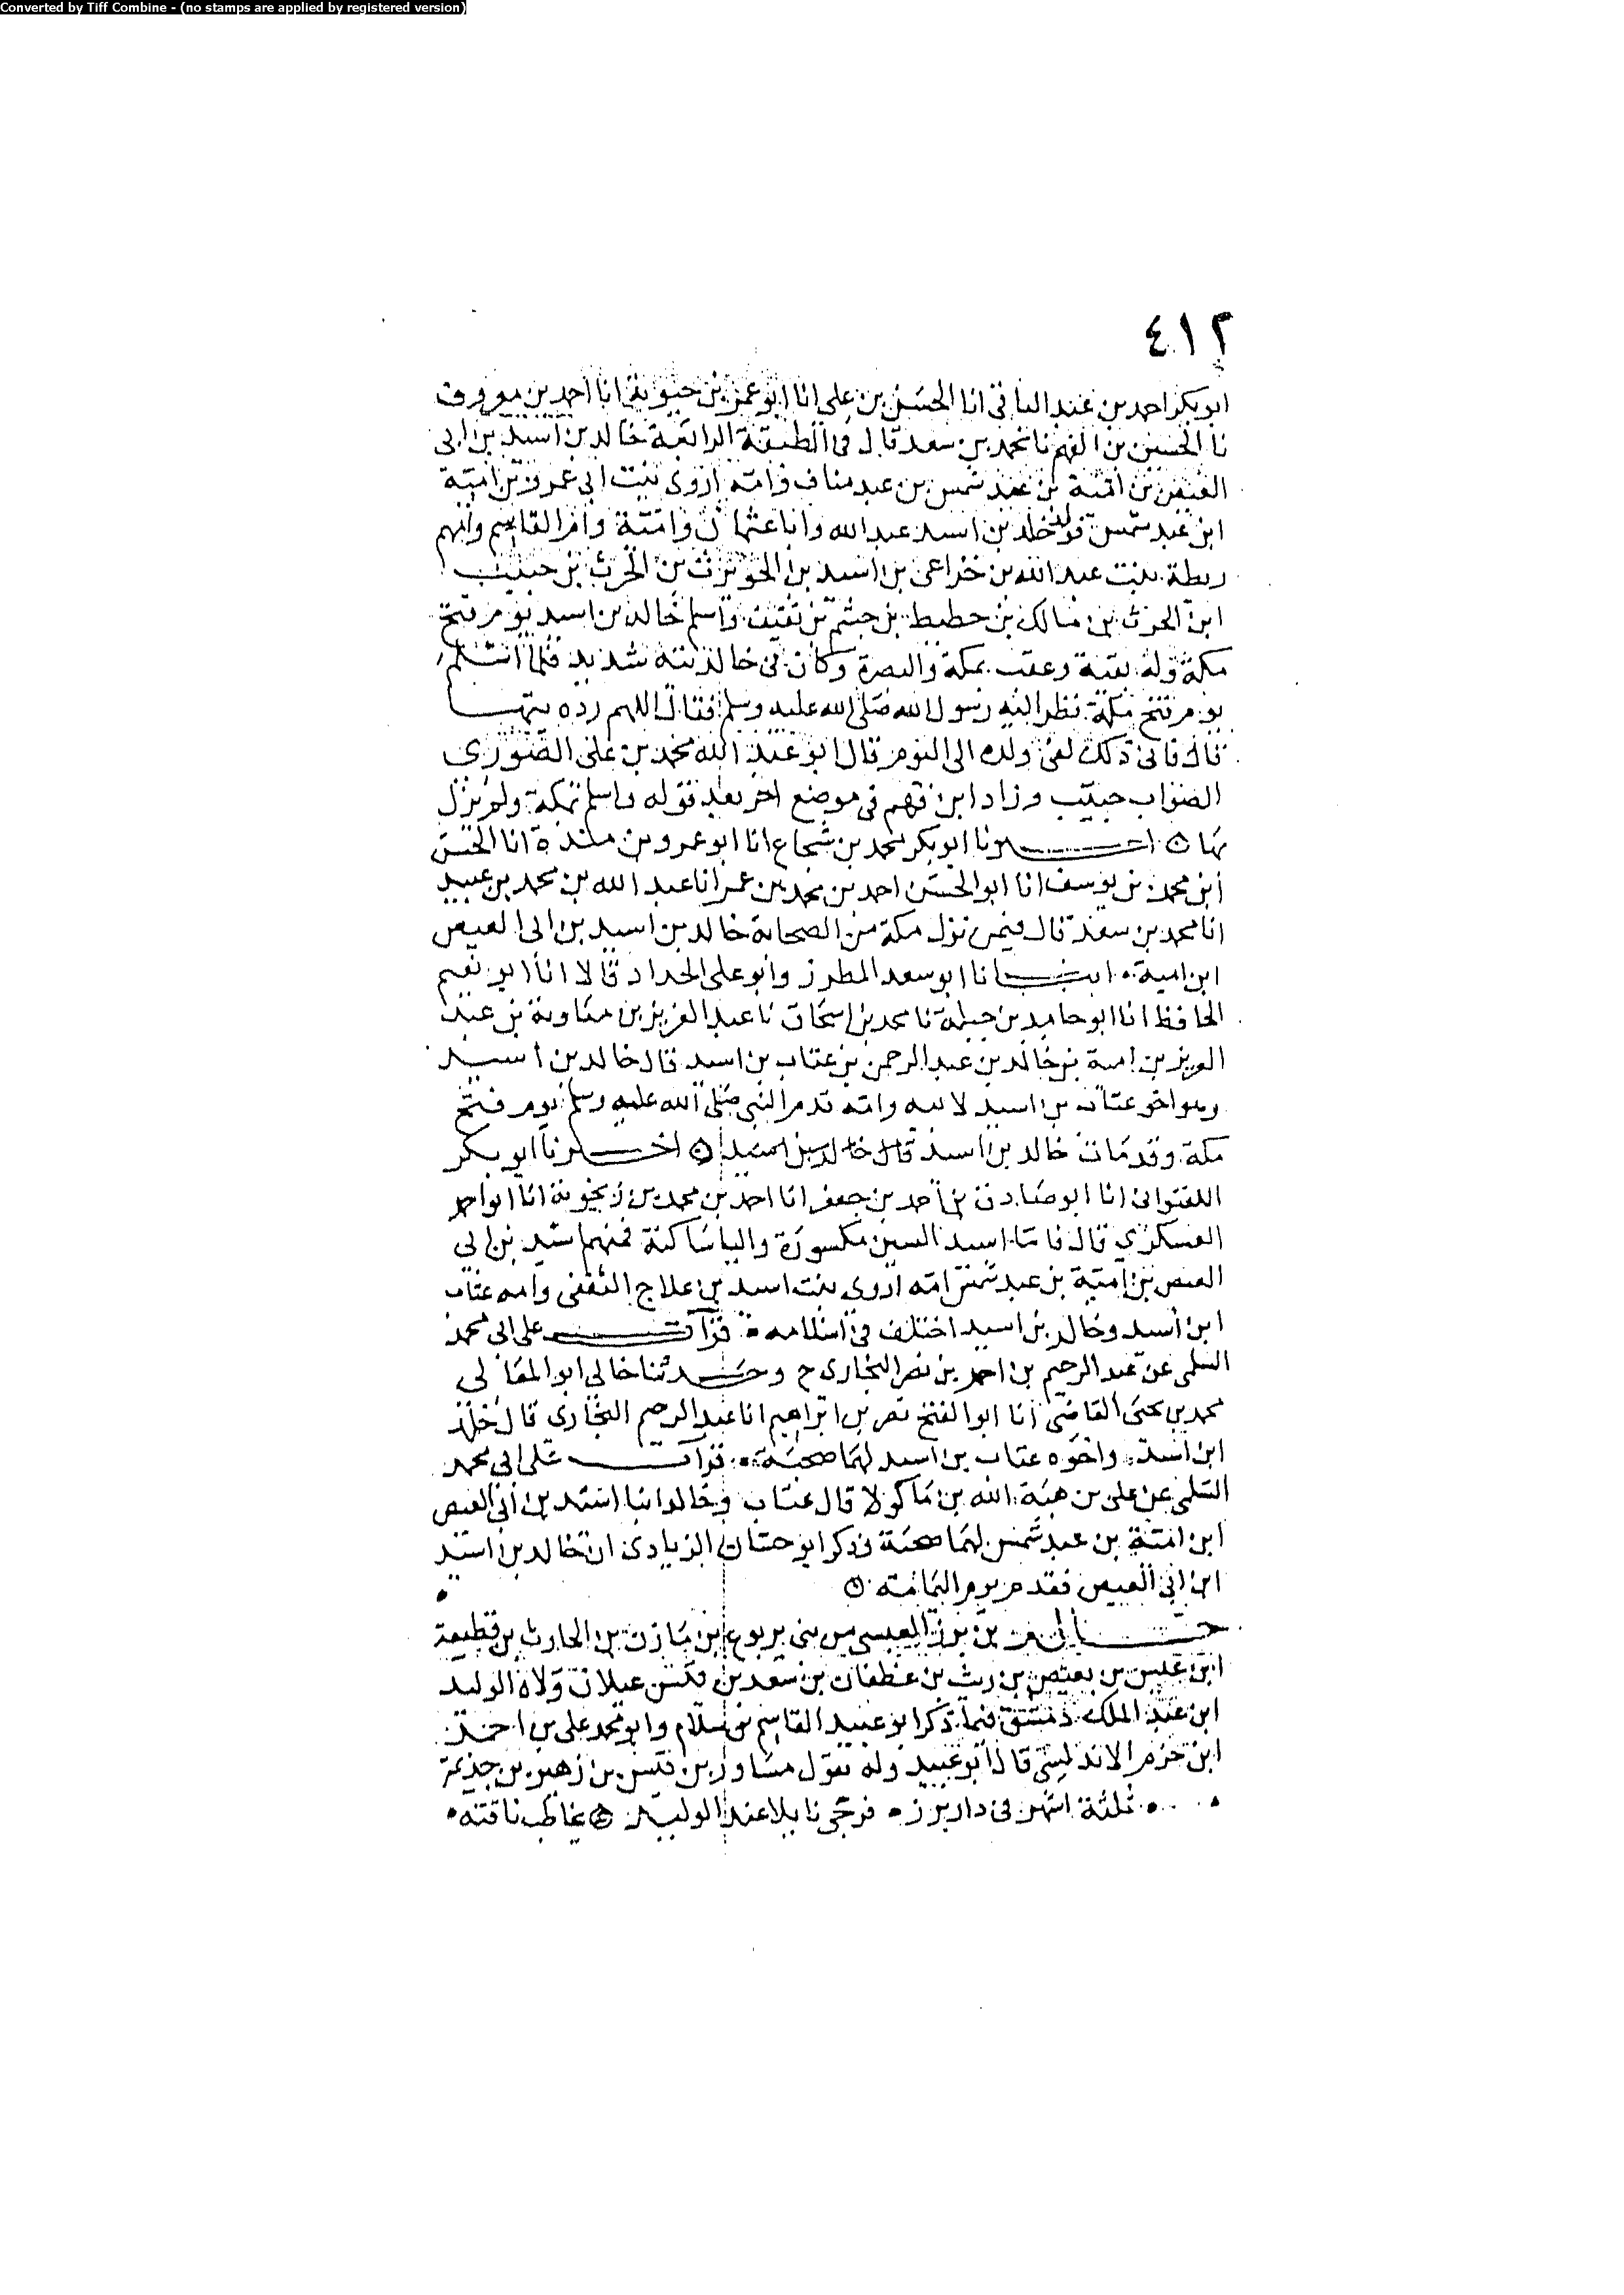 Converted by Tiff Combine - (no stamps are applied by registered version)
٤١٢
ابو بكر احمد بن عبد الباقى انا الحسن بن على انا ابو عمر بن حيويه انا احمد بن معروف
نا الحسين بن الفهم نا محمد بن سعد قال فى الطبقة الرابعة خالد بن اسيد بن ابى
العيص بن امية بن عبد شمس بن عبد مناف وامه اروى بنت ابى عمرو بن امية
ابن عبد شمس فولد خالد بن اسيد عبد الله وابا عثمان وامية وام القاسم وامهم
ريطة بنت عبد الله بن خزاعى بن اسيد بن الحويرث بن الحرث بن حبيب
ابن الحرث بن مالك بن حطيط بن جشم بن ثقيف واسلم خالد بن اسيد يوم فتح
مكة وله بقية وعقب بمكة والبصرة وكان فى خالد تيه شديد فلما اسلم
يوم فتح مكة نظر اليه رسول الله صلى الله عليه وسلم فقال اللهم زده تيها
قال فان ذلك لفى ولده الى اليوم قال ابو عبد الله محمد بن على الصورى
الصواب حبيب وزاد ابن فهم فى موضع اخر بعد قوله واسلم بمكة ولم يزل
بها اخبرنا ابو بكر محمد بن شجاع انا ابو عمرو بن مندة انا الحسن
ابن محمد بن يوسف انا ابو الحسن احمد بن محمد بن عمر انا عبد الله بن محمد بن عبيد
انا محمد بن سعد قال فيمن نزل مكة من الصحابة خالد بن اسيد بن ابى العيص
ابن امية انبانا ابو سعد المطرز وابو على الحداد قالا انا ابو نعيم
الحافظ انا ابو حامد بن جبلة نا محمد بن اسحاق نا عبد العزيز بن معاوية بن عبد
العزيز بن امية بن خالد بن عبد الرحمن بن عتاب بن اسيد قال خالد بن اسيد
وهو اخو عتاب بن اسيد لابيه وامه قدم النبى صلى الله عليه وسلم يوم فتح
مكة وقد مات خالد بن اسيد قال خالد بن اسيد اخبرنا ابو بكر
اللفتوانى انا ابو صادق بن احمد بن جعفر انا احمد بن محمد بن زنجوية انا ابو احمد
العسكرى قال فاما اسيد السين مكسورة واليا ساكنة فمنهم اسيد بن ابى
العيص بن امية بن عبد شمس امه اروى بنت اسيد بن علاج الثقفى وابنه عتاب
ابن اسيد وخالد بن اسيد اختلف فى اسلامه قرات على ابى محمد
السلمى عن عبد الرحيم بن احمد بن نصر البخارى ح وحدثنا خالى ابو المعالى
محمد بن يحيى القاضى انا ابو الفتح نصر بن ابراهيم انا عبد الرحيم البخارى قال خالد
ابن اسيد واخوه عتاب بن اسيد لهما صحبة قرات على ابى محمد
السلمى عن على بن هبة الله بن ماكولا قال عتاب وخالد ابنا اسيد بن ابى العيص
ابن امية بن عبد شمس لهما صحبة وذكر ابو حسان الزيادى ان خالد بن اسيد
ابن ابى العيص فقد يوم اليمامة
خالد بن برز العبسى من بنى يربوع بن مازن بن الحارث بن قطيعة
ابن عبس بن بغيض بن ريث بن غطفان بن سعد بن قيس عيلان ولاه الوليد
ابن عبد الملك دمشق فيما ذكر ابو عبيد القاسم بن سلام وابو محمد على بن احمد
ابن حزم الاندلسى قال ابو عبيد وله يقول مساور بن قيس بن زهير بن جذيمة
ثلثة اشهر فى دار برز فرجى نايلا عند الوليد يخاطب ناقته